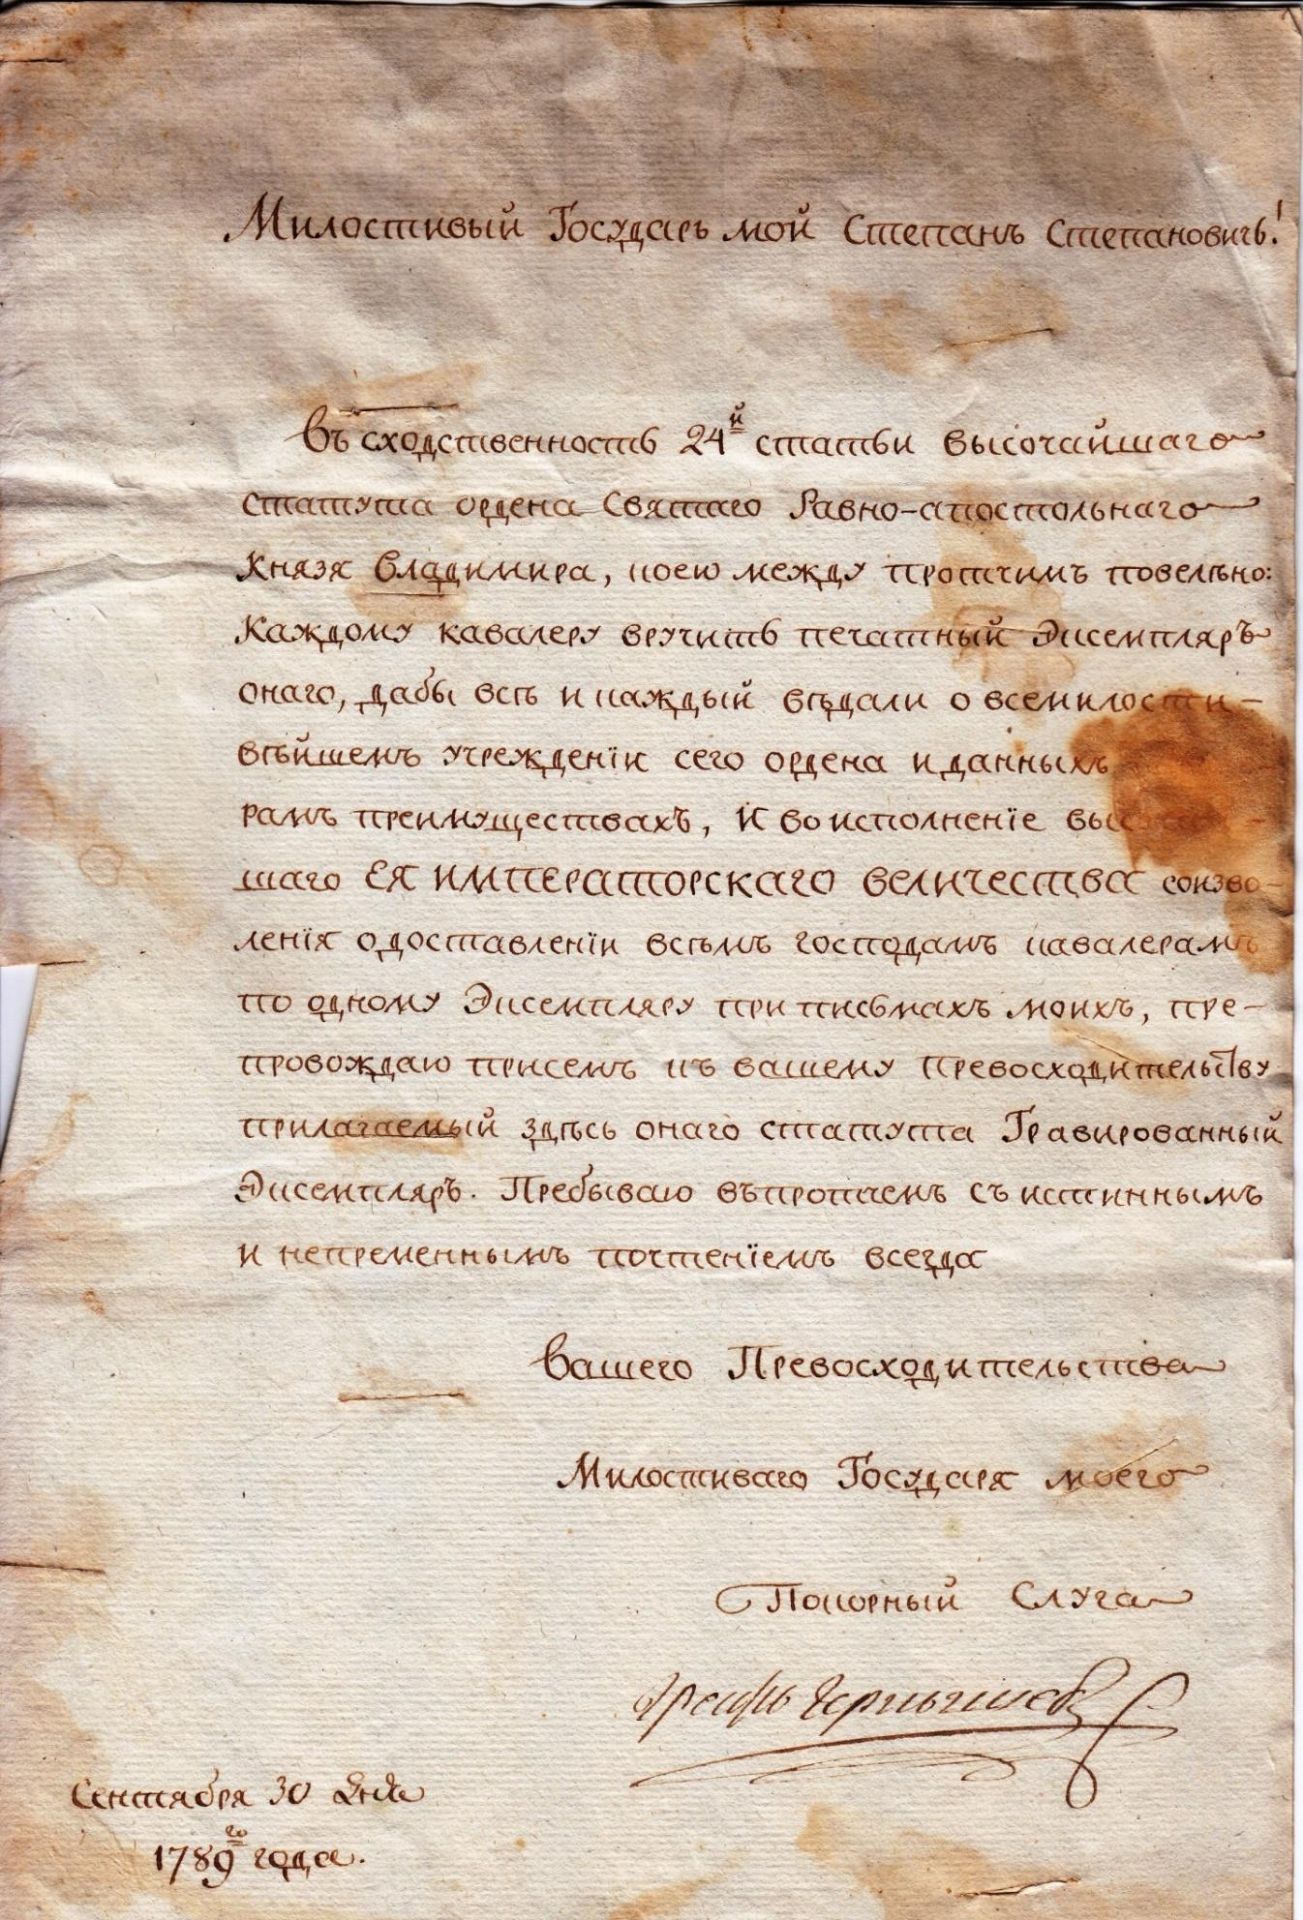 Милостивый Государь мой Степанъ Степановичь!
Въ сходственность 24й статьи высочайшаго
статута ордена Святаго Равно-апостольнаго
Князя Владимира, коею между протчимъ повелѣно:
Каждому кавалеру вручить печатный Эксемпляръ
онаго, дабы всѣ и каждый вѣдали о всемилости-
вѣйшемъ учрежденїи сего ордена и данныхъ
рамъ преимуществахъ, И во исполненїе
шаго ЕЯ ИМПЕРАТОРСКАГО ВЕЛИЧЕСТВА соизво-
ленїя одоставленїи всѣмъ господамъ кавалерамъ
по одному Эксемпляру при письмахъ моихъ, пре-
провождаю присемъ къ вашему Превосходительству
прилагаемый здѣсь онаго статута Гравированный
Эксемпляръ. Пребываю въпротчемъ съ истиннымъ
и непременнымъ почтенїемъ всегда
Вашего Превосходительства
Милостиваго Государя моего
Покорный Слуга
Графъ Чернышев
Сентября 30 дня
1789го года.